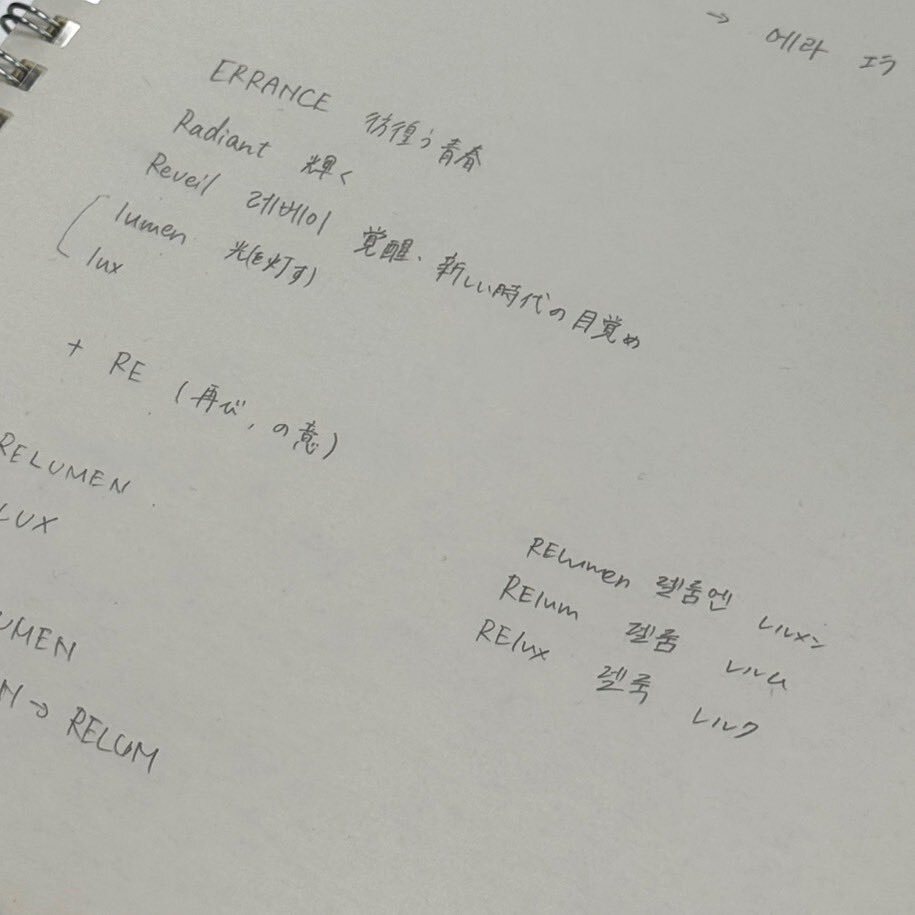 → 에라 エラ
ERRANCE 彷徨う青春
Radiant 輝く
Reveil 레베이 覚醒、新しい時代の目覚め
lumen 光(を灯す)
lux
+ RE (再び、の意)
RELUMEN
LUX
UMEN
N → RELUM
RElumen 렐룸엔 レルメン
RElum 렐룸 レルム
RElux 렐룩 レルク